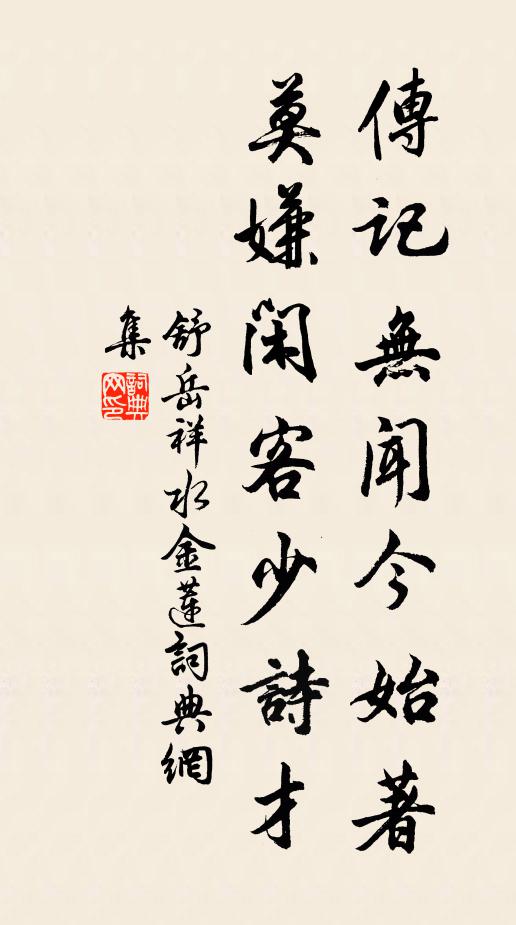 傳記無聞今始著
莫嫌閑客少詩才
舒岳祥水金蓮詞典網
集
詞典
网印